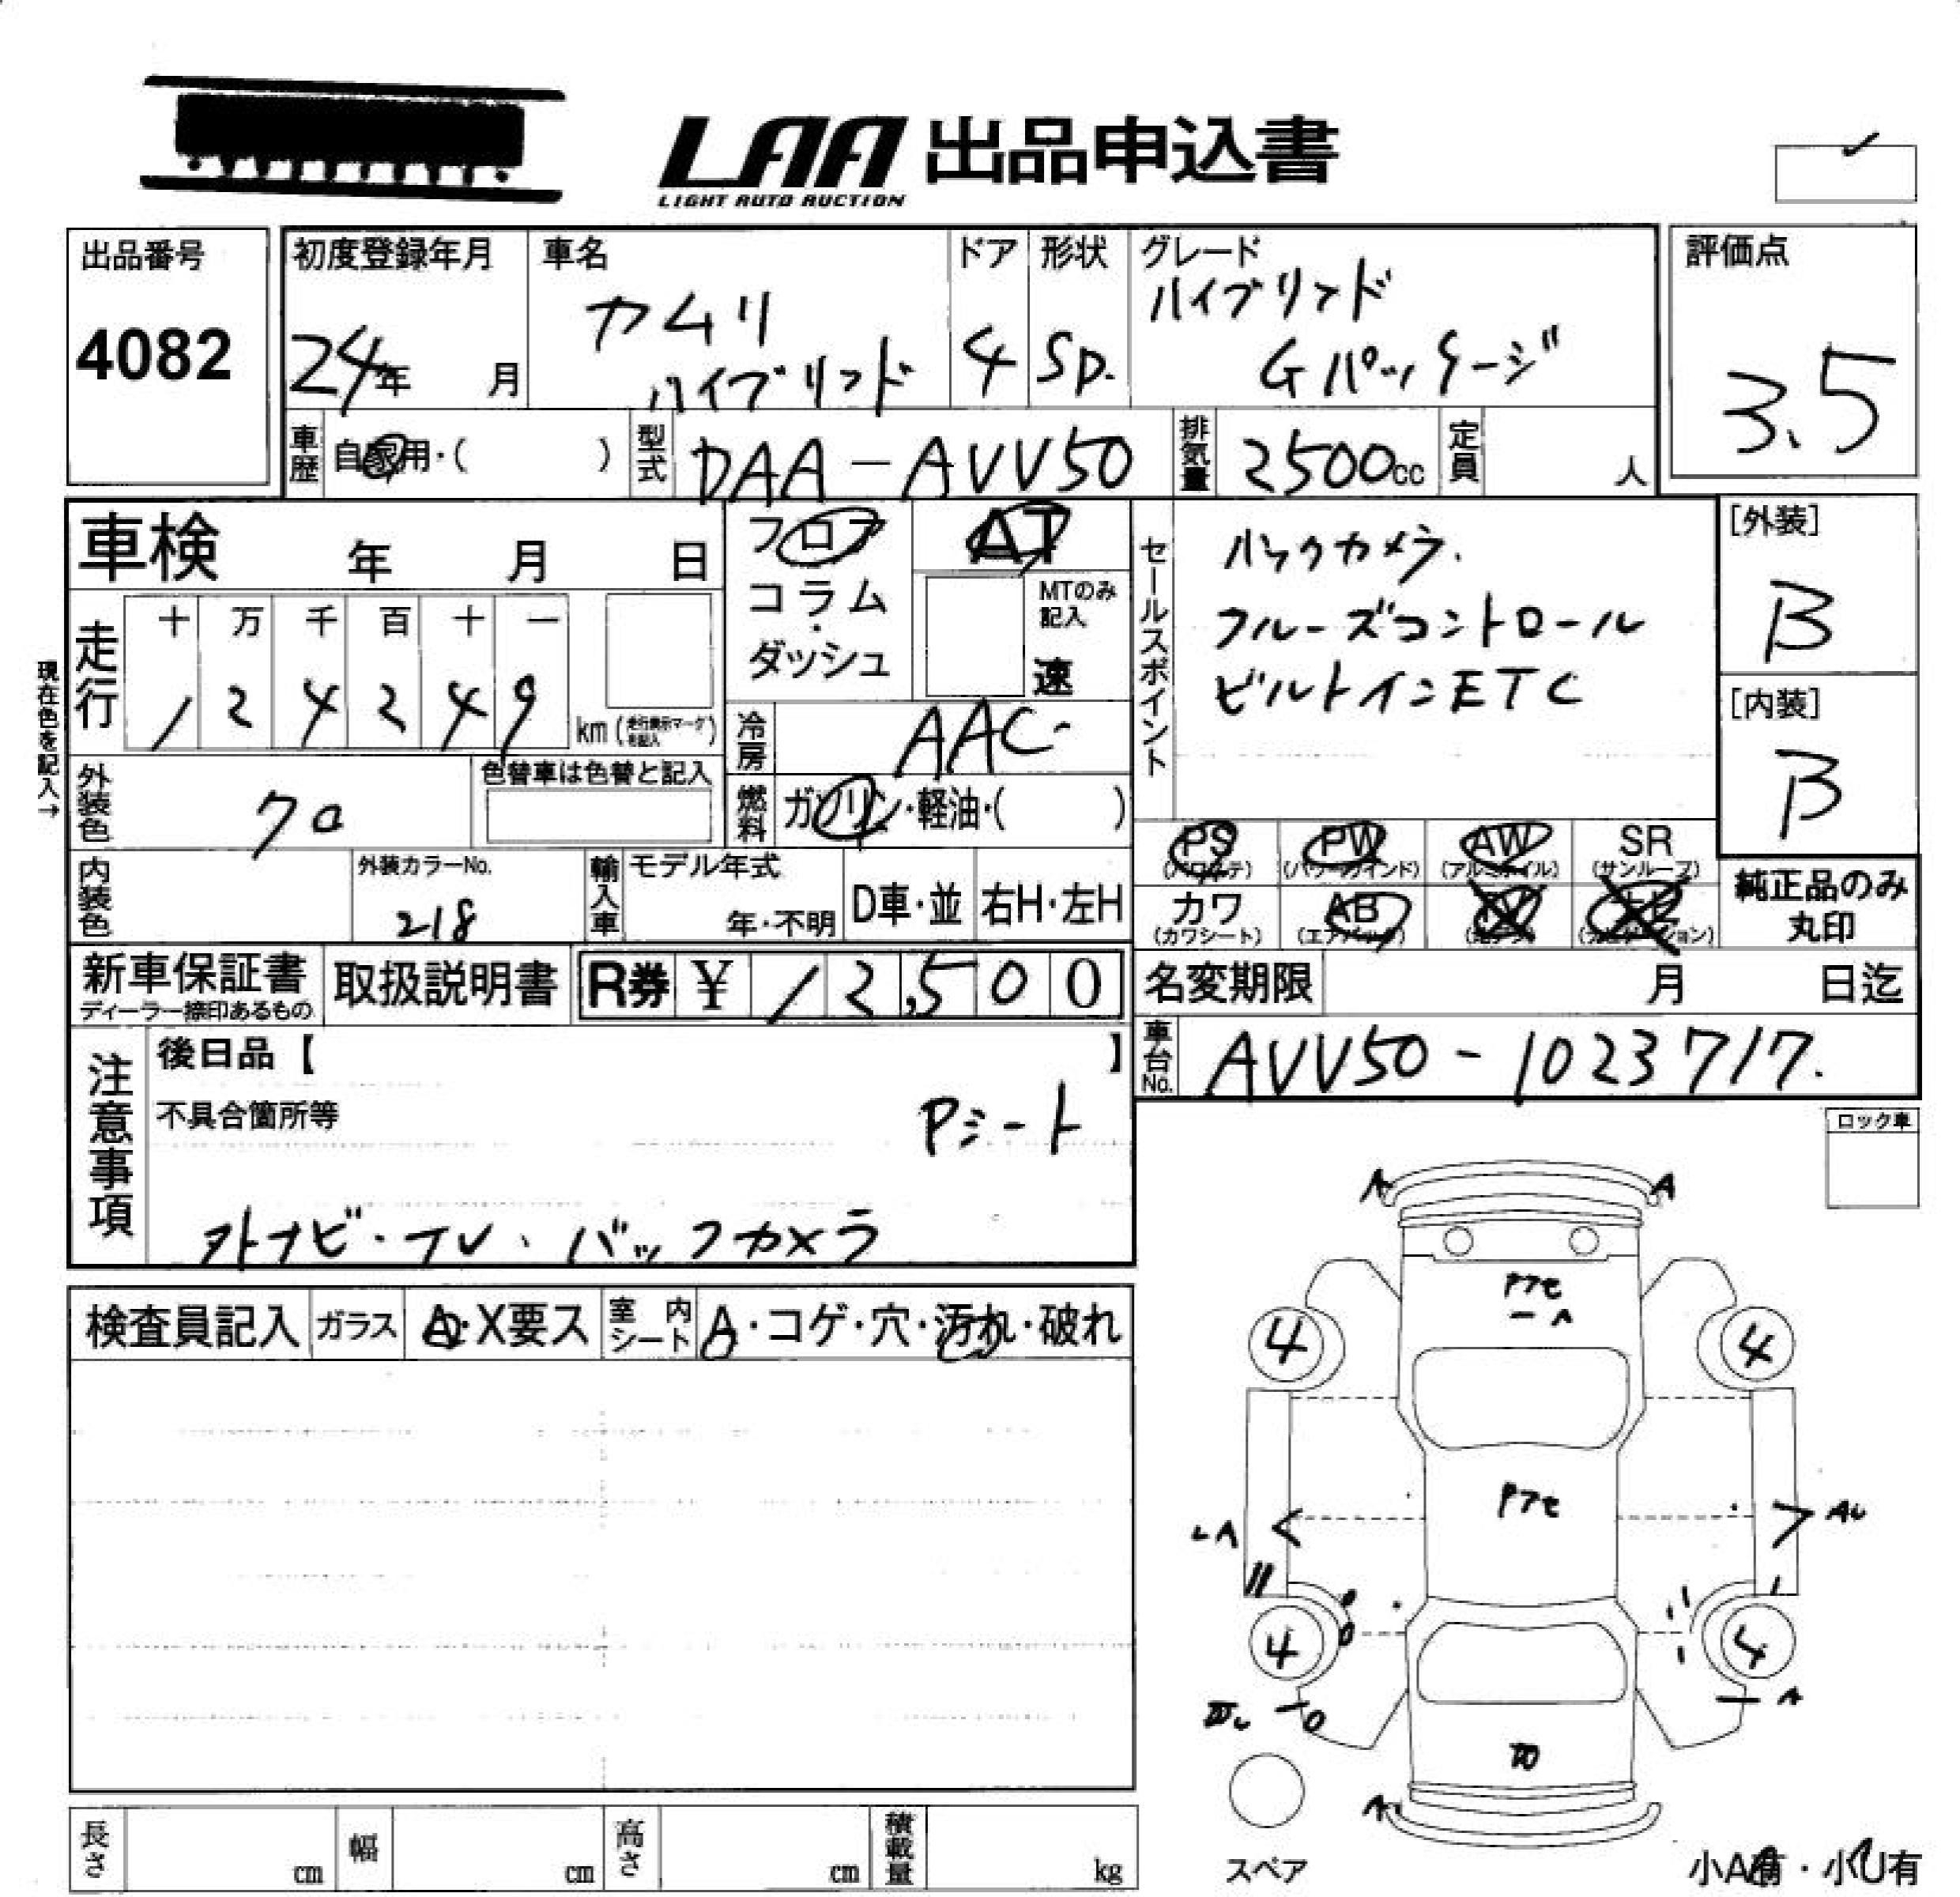 LAA 出品申込書
LIGHT AUTO AUCTION
出品番号
4082
初度登録年月
24年 月
車名
カムリ
ハイブリッド
ドア
4
形状
SD.
グレード
ハイブリッド
Gパッケージ
評価点
3.5
車歴
自家用・( )
型式
DAA-AVV50
排気量
2500cc
定員
人
車検 年 月 日
フロア
コラム
・
ダッシュ
AT
MTのみ
記入
速
セールスポイント
バックカメラ.
クルーズコントロール
ビルトインETC
[外装]
B
[内装]
B
現在色を記入→
走行
十 万 千 百 十 一
1 2 4 2 4 9
km (走行表示マークを記入)
冷房
AAC
外装色
クロ
色替車は色替と記入
燃料
ガソリン・軽油・( )
PS PW AW SR
(パワステ) (パワーウインド) (アルミホイル) (サンルーフ)
カワ AB TV
(カワシート) (エアバッグ)
純正品のみ
丸印
内装色
外装カラーNo.
218
輸入車
モデル年式
年・不明
D車・並
右H・左H
新車保証書
ディーラー捺印あるもの
取扱説明書
R券 ¥ 12,500
名変期限 月 日迄
注意事項
後日品【 】
不具合箇所等
Pシート
外ナビ・TV、バックカメラ
車台No.
AVV50-1023717.
ロック車
検査員記入
ガラス
A・X要ス
室内シート
A・コゲ・穴・汚れ・破れ
A A
Pアセ
- A
4 4
Pアセ
LA
AU
4 4
A
A
スペア
小A有・小U有
長さ cm
幅 cm
高さ cm
積載量 kg